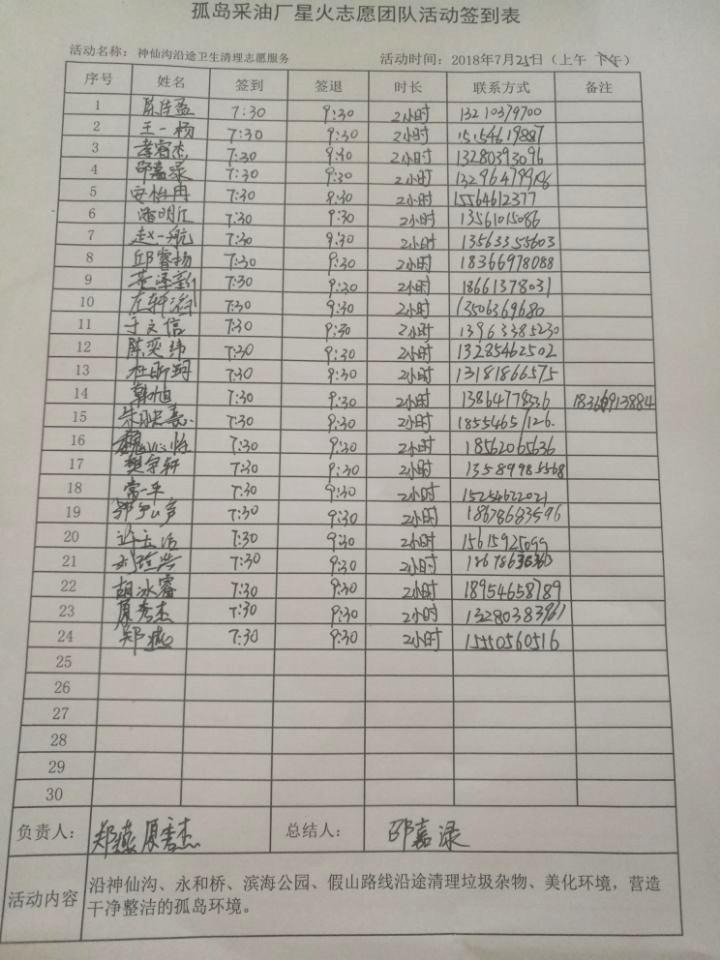 孤岛采油厂星火志愿团队活动签到表
活动名称：神仙沟沿途卫生清理志愿服务 活动时间：2018年7月25日（上午 下午）
序号 姓名 签到 签退 时长 联系方式 备注
1 7:30 9:30 2小时 13210379700
2 王一杨 7:30 9:30 2小时 15154619887
3 李睿杰 7:30 9:30 2小时 13280393096
4 邵嘉渌 7:30 9:30 2小时
5 安怡冉 7:30 9:30 2小时 15564612377
6 潘明江 7:30 9:30 2小时 13561015086
7 赵一航 7:30 9:30 2小时 13563355603
8 邱睿扬 7:30 9:30 2小时 18366978088
9 7:30 9:30 2小时 18661378031
10 7:30 9:30 2小时 13506369680
11 于文信 7:30 9:30 2小时 13963385230
12 陈奕玮 7:30 9:30 2小时 13285462502
13 杜昕翔 7:30 9:30 2小时 13181866575
14 韩旭 7:30 9:30 2小时 18366913884
15 7:30 9:30 2小时
16 7:30 9:30 2小时 18562065636
17 樊宇轩 7:30 9:30 2小时 13589985568
18 常一平 7:30 9:30 2小时 15254622021
19 7:30 9:30 2小时 18678683596
20 7:30 9:30 2小时
21 7:30 9:30 2小时
22 胡冰睿 7:30 9:30 2小时 18954658789
23 原秀杰 7:30 9:30 2小时 13280383961
24 郑燕 7:30 9:30 2小时 15550560516
25
26
27
28
29
30
负责人： 郑燕 原秀杰 总结人： 邵嘉渌
活动内容 沿神仙沟、永和桥、滨海公园、假山路线沿途清理垃圾杂物、美化环境，营造
干净整洁的孤岛环境。